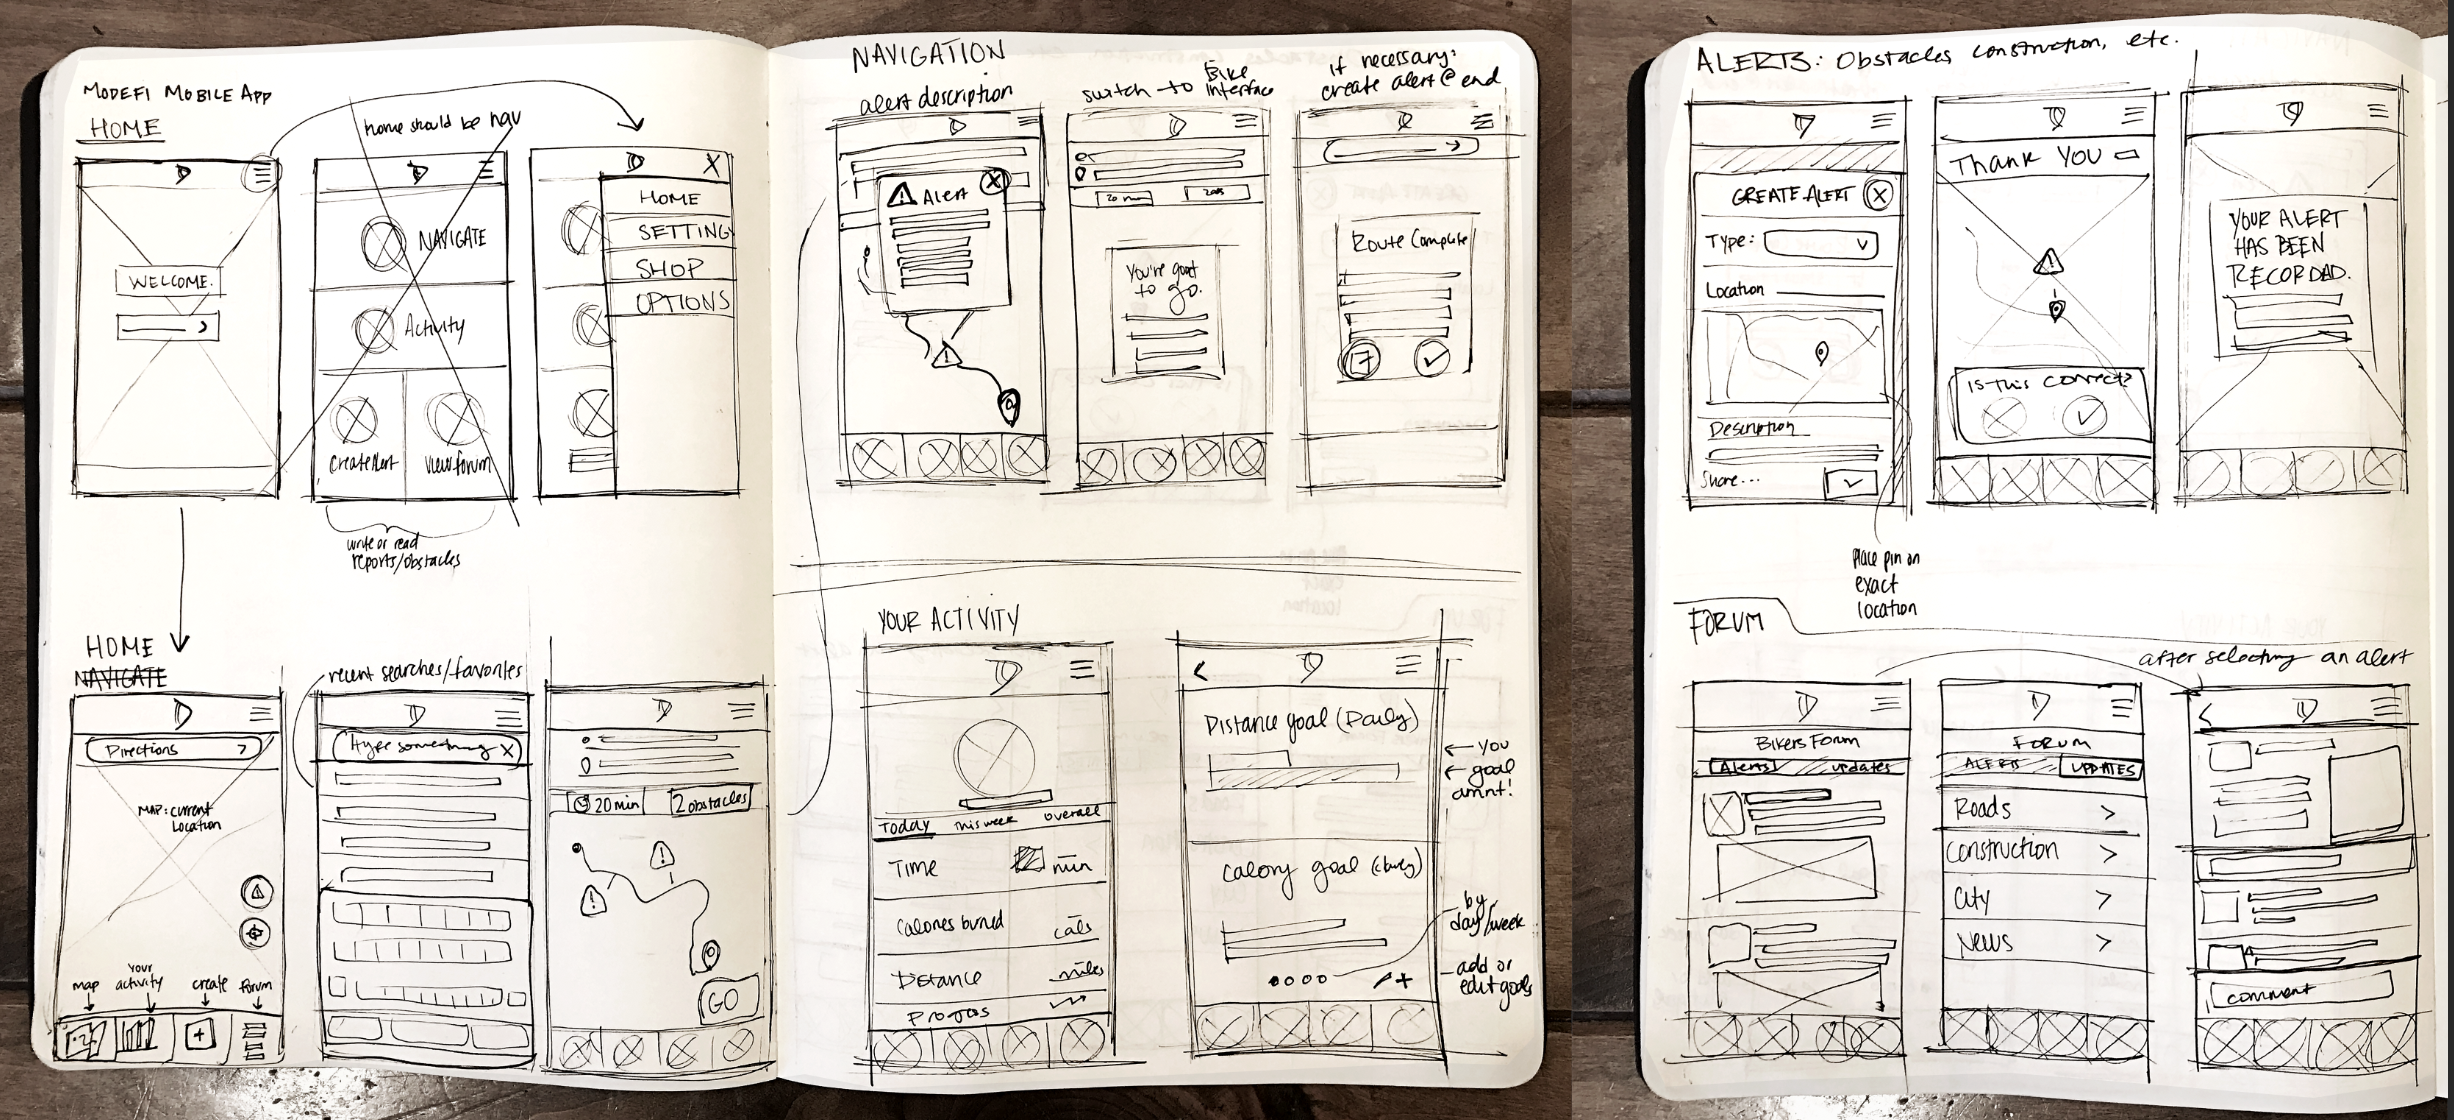 MODEFI MOBILE APP
HOME
home should be nav
WELCOME.
NAVIGATE
Activity
Create Alert
View forum
X
HOME
SETTING
SHOP
OPTIONS
write or read
reports/obstacles
HOME
NAVIGATE
recent searches/favorites
Directions
MAP: Current
Location
map
your
activity
create
forum
type something X
20 min
2 obstacles
GO
NAVIGATION
alert description
switch to Bike
interface
if necessary:
create alert @ end
! Alert X
!
20 min
You're good
to go.
Route Complete
YOUR ACTIVITY
Today
This week
overall
Time
min
Calories burned
cals
Distance
miles
Progress
Distance goal (Daily)
← you
← goal
amnt!
Calory goal (daily)
by
day/week
add or
edit goals
ALERTS: Obstacles construction, etc.
CREATE ALERT X
Type:
Location
Description
Share...
Place pin on
exact
location
Thank YOU
!
Is this correct?
YOUR ALERT
HAS BEEN
RECORDAD.
FORUM
after selecting an alert
Bikers Forum
Alerts
updates
FORUM
ALERTS
UPDATES
Roads
Construction
City
News
comment